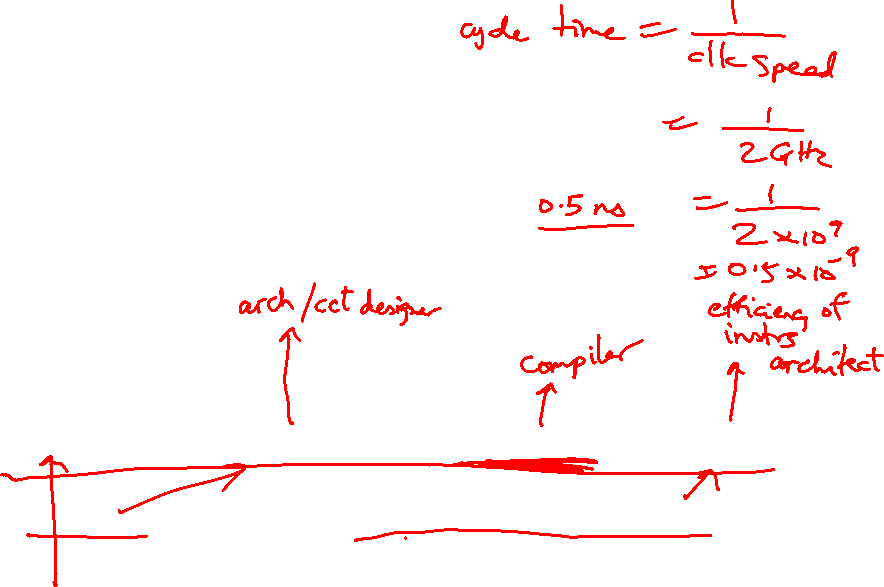 cycle time = 1/clk speed
= 1/2 GHz
0.5 ns = 1/2 × 10⁹
= 0.5 × 10⁻⁹
arch/cct designer
efficiency of
instrs
compiler
architect